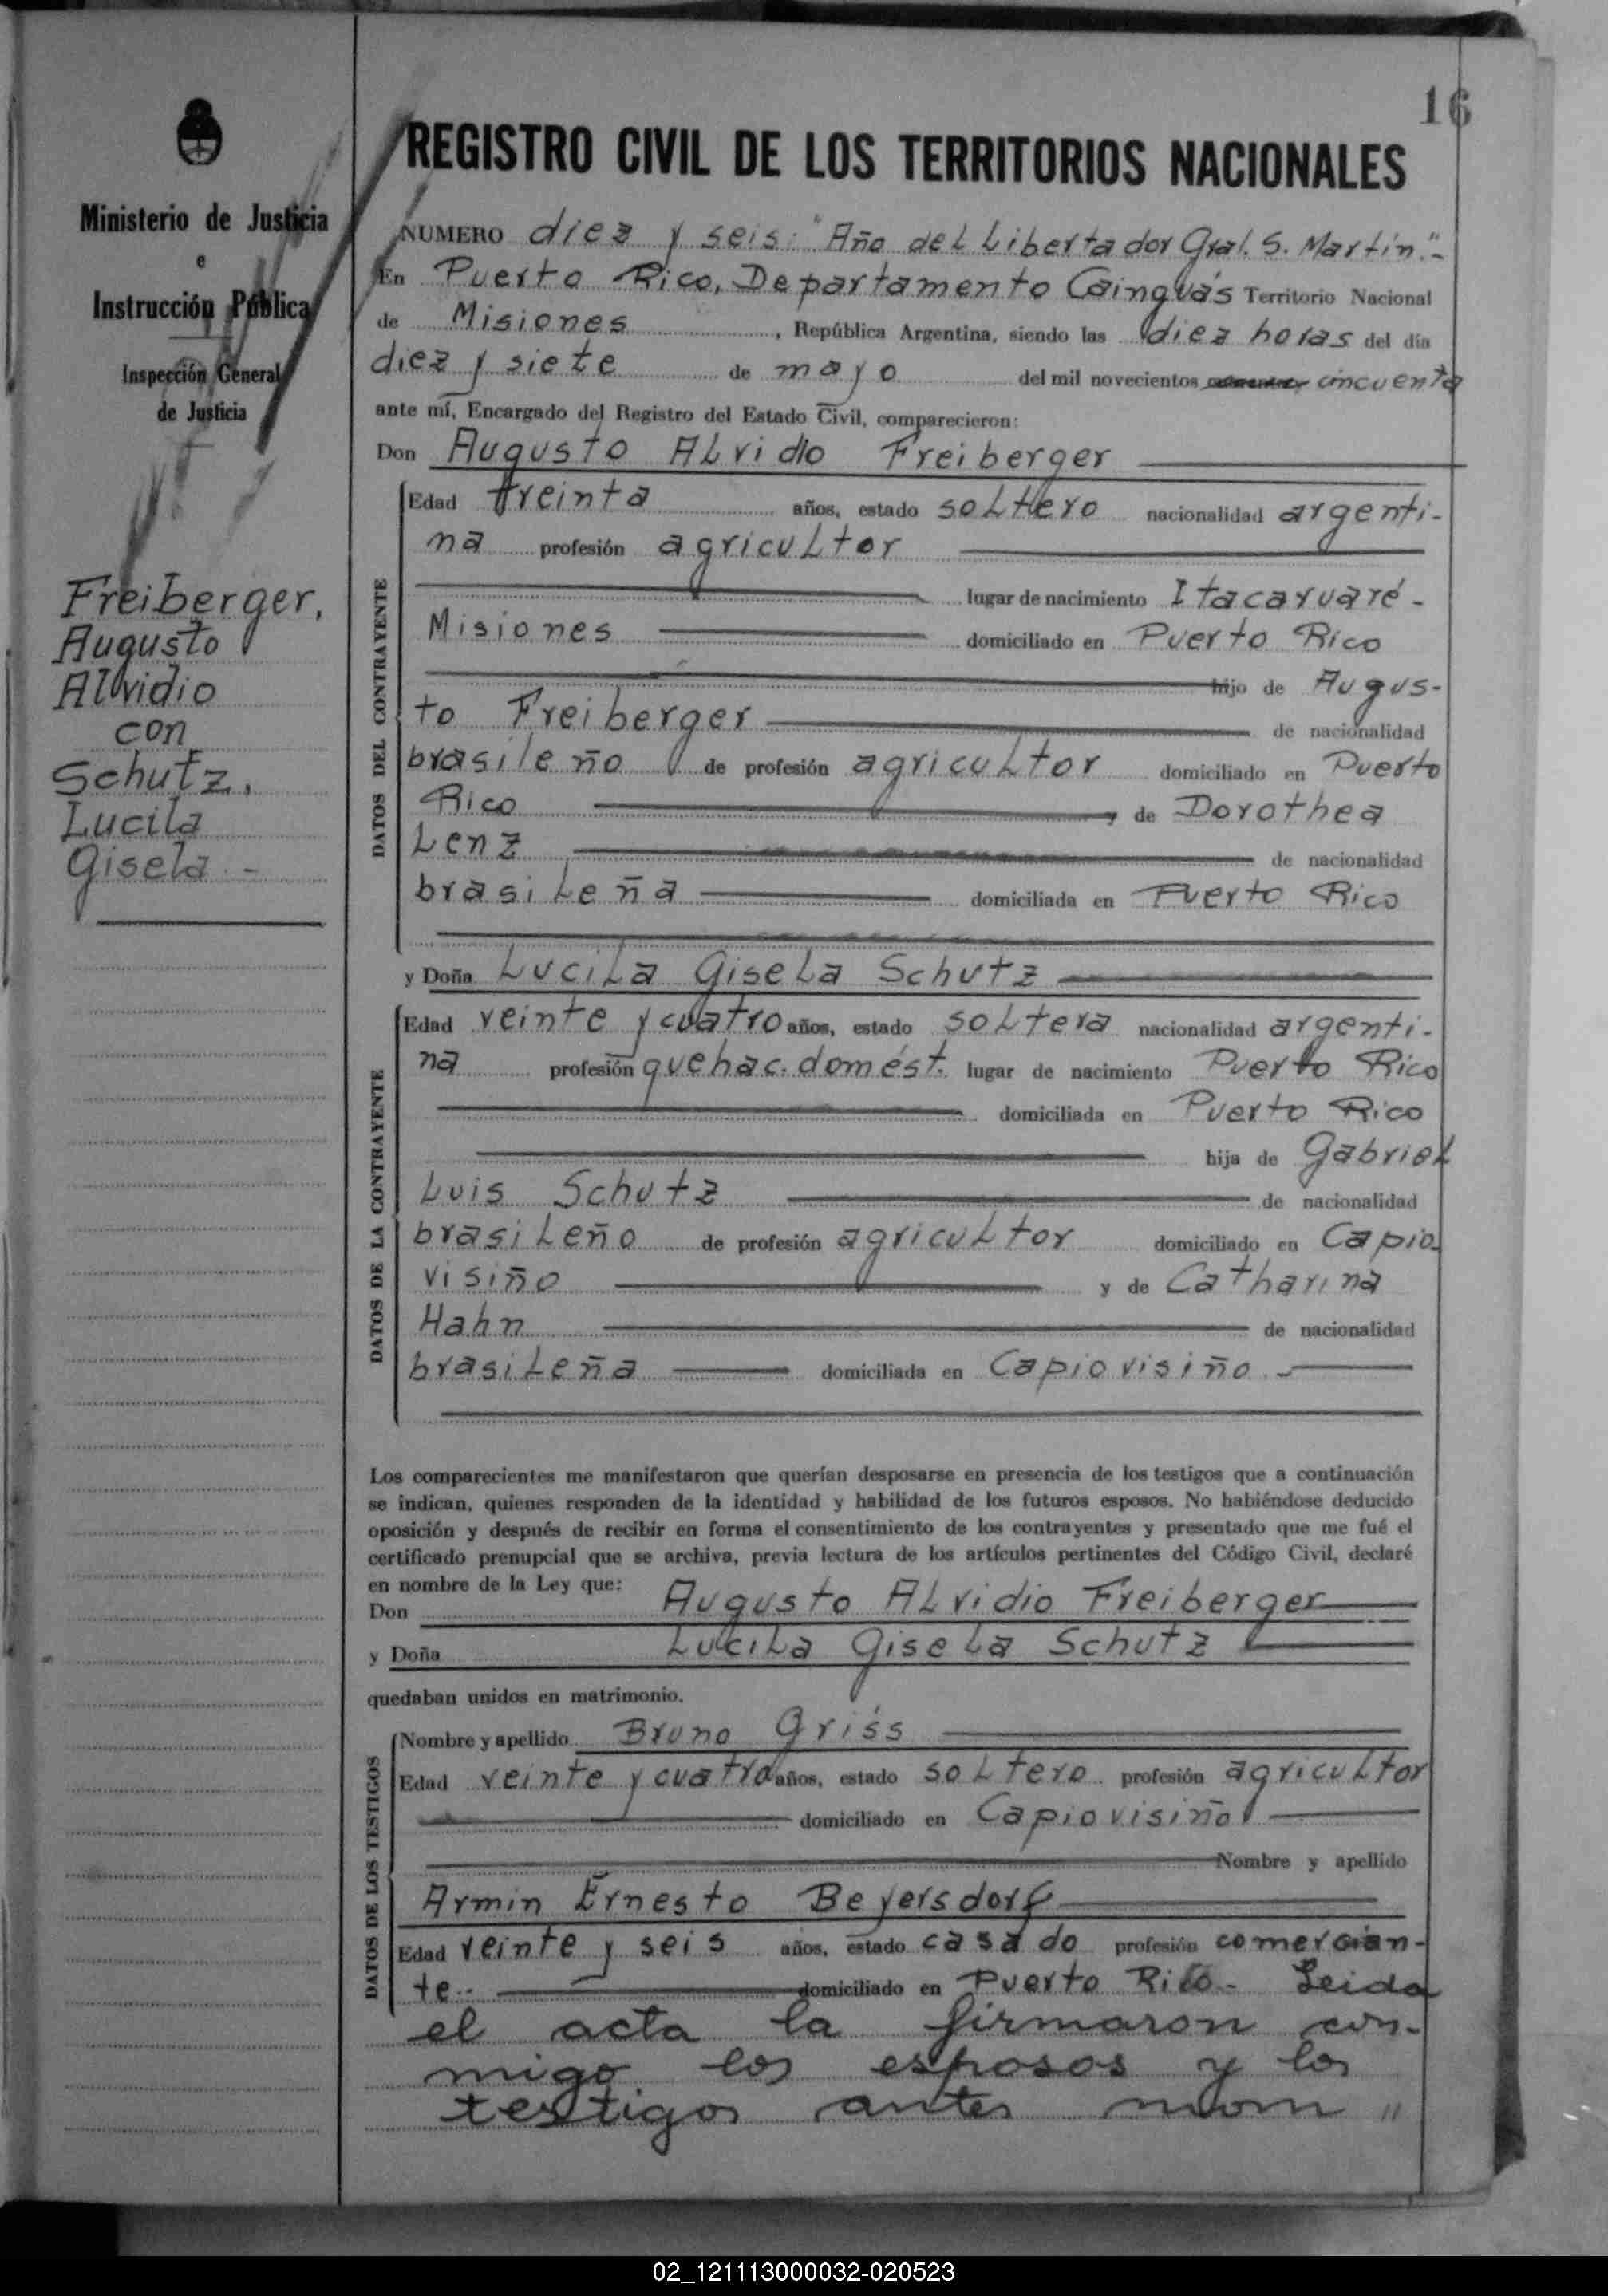 16
Ministerio de Justicia
e
Instrucción Pública
Inspección General
de Justicia
Freiberger,
Augusto
Alvidio
con
Schutz,
Lucila
Gisela -
REGISTRO CIVIL DE LOS TERRITORIOS NACIONALES
NUMERO diez y seis: "Año del Libertador Gral. S. Martín."-
En Puerto Rico, Departamento Cainguás Territorio Nacional
de Misiones, República Argentina, siendo las diez horas del día
diez y siete de mayo del mil novecientos cincuenta
ante mí, Encargado del Registro del Estado Civil, comparecieron:
Don Augusto Alvidio Freiberger
DATOS DEL CONTRAYENTE
Edad treinta años, estado soltero nacionalidad argenti-
na profesión agricultor
lugar de nacimiento Itacaruaré -
Misiones domiciliado en Puerto Rico
hijo de Augus-
to Freiberger de nacionalidad
brasileño de profesión agricultor domiciliado en Puerto
Rico y de Dorothea
Lenz de nacionalidad
brasileña domiciliada en Puerto Rico
y Doña Lucila Gisela Schutz
DATOS DE LA CONTRAYENTE
Edad veinte y cuatro años, estado soltera nacionalidad argenti-
na profesión quehac. domést. lugar de nacimiento Puerto Rico
domiciliada en Puerto Rico
hija de Gabriel
Luis Schutz de nacionalidad
brasileño de profesión agricultor domiciliado en Capio-
visiño y de Catharina
Hahn de nacionalidad
brasileña domiciliada en Capiovisiño.-
Los comparecientes me manifestaron que querían desposarse en presencia de los testigos que a continuación
se indican, quienes responden de la identidad y habilidad de los futuros esposos. No habiéndose deducido
oposición y después de recibir en forma el consentimiento de los contrayentes y presentado que me fué el
certificado prenupcial que se archiva, previa lectura de los artículos pertinentes del Código Civil, declaré
en nombre de la Ley que:
Don Augusto Alvidio Freiberger
y Doña Lucila Gisela Schutz
quedaban unidos en matrimonio.
DATOS DE LOS TESTIGOS
Nombre y apellido Bruno Griss
Edad veinte y cuatro años, estado soltero profesión agricultor
domiciliado en Capiovisiño
Nombre y apellido
Armin Ernesto Beyersdorf
Edad veinte y seis años, estado casado profesión comercian-
te.- domiciliado en Puerto Rico.- Leida
el acta la firmaron con-
migo los esposos y los
testigos antes nom "
02_121113000032-020523